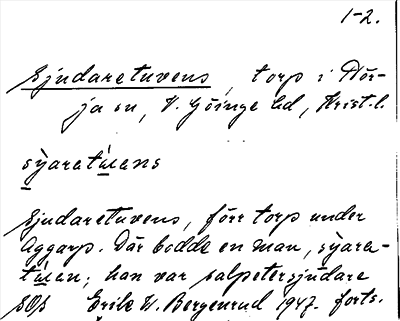 1-2.
Sjudaretuvens, torp i Nör-
ja sn, V. Göinge hd, Krist. l.
syaratu̇ens
Sjudaretuvens, förr torp under
Aggarp. Där bodde en man, syara-
tuen; han var salpetersjudare
SOs Erik W. Bergenrud 1947. forts.